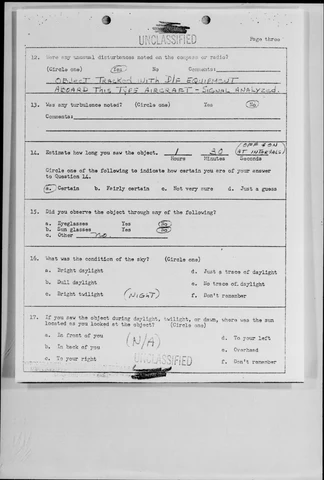 UNCLASSIFIED
Page three
12. Have any unusual disturbance noted on the compass or radio?
(Circle one) Yes No Comments:
OBJECT TRACKED WITH D/F EQUIPMENT
ABOARD THIS TYPE AIRCRAFT - SIGNAL ANALYZED.
13. Was any turbulance noted? (Circle one) Yes No
Comments:
14. Estimate how long you saw the object. 1 30 (OFF & ON AT INTERVALS)
Hours Minutes Seconds
Circle one of the following to indicate how certain you are of your answer
to Question 14.
a. Certain b. Fairly certain c. Not very sure d. Just a guess
15. Did you observe the object through any of the following?
a. Eyeglasses Yes No
b. Sun glasses Yes No
c. Other NO.
16. What was the condition of the sky? (Circle one)
a. Bright daylight d. Just a trace of daylight
b. Dull daylight e. No trace of daylight
c. Bright twilight (NIGHT) f. Don't remember
17. If you saw the object during daylight, twilight, or dawn, where was the sun
located as you looked at the object? (Circle one)
a. In front of you d. To your left
b. In back of you (N/A) e. Overhead
c. To your right f. Don't remember
UNCLASSIFIED